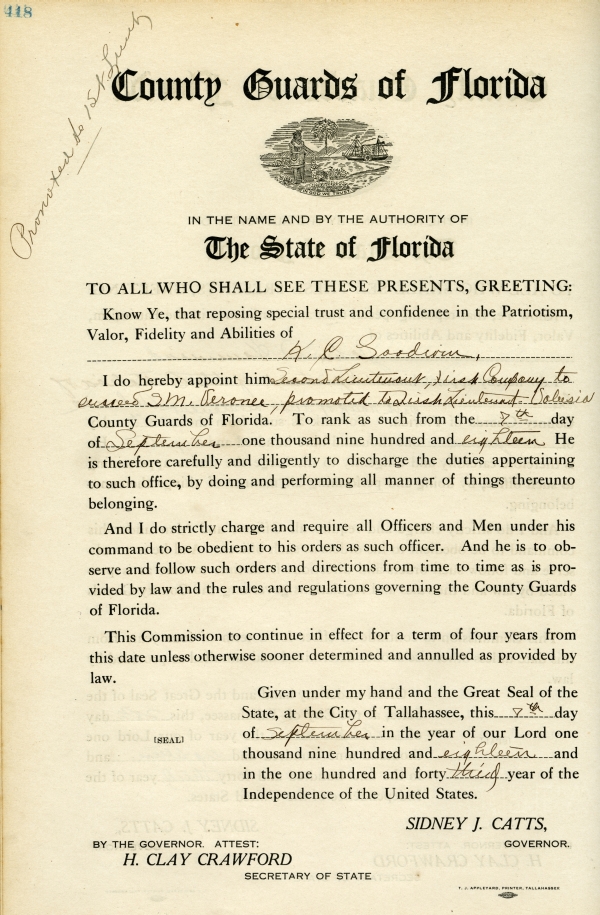 418
Promoted to 1st Lieut
County Guards of Florida
IN GOD WE TRUST
IN THE NAME AND BY THE AUTHORITY OF
The State of Florida
TO ALL WHO SHALL SEE THESE PRESENTS, GREETING:
Know Ye, that reposing special trust and confidence in the Patriotism,
Valor, Fidelity and Abilities of
K. C. Goodwin,
I do hereby appoint him Second Lieutenant, First Company to
succeed S. M. promoted to First Lieutenant Volusia
County Guards of Florida. To rank as such from the 7th day
of September one thousand nine hundred and eighteen He
is therefore carefully and diligently to discharge the duties appertaining
to such office, by doing and performing all manner of things thereunto
belonging.
And I do strictly charge and require all Officers and Men under his
command to be obedient to his orders as such officer. And he is to ob-
serve and follow such orders and directions from time to time as is pro-
vided by law and the rules and regulations governing the County Guards
of Florida.
This Commission to continue in effect for a term of four years from
this date unless otherwise sooner determined and annulled as provided by
law.
Given under my hand and the Great Seal of the
State, at the City of Tallahassee, this 7th day
of September in the year of our Lord one
[SEAL]
thousand nine hundred and eighteen and
in the one hundred and forty third year of the
Independence of the United States.
SIDNEY J. CATTS,
BY THE GOVERNOR. ATTEST: GOVERNOR.
H. CLAY CRAWFORD
SECRETARY OF STATE
T. J. APPLEYARD, PRINTER, TALLAHASSEE